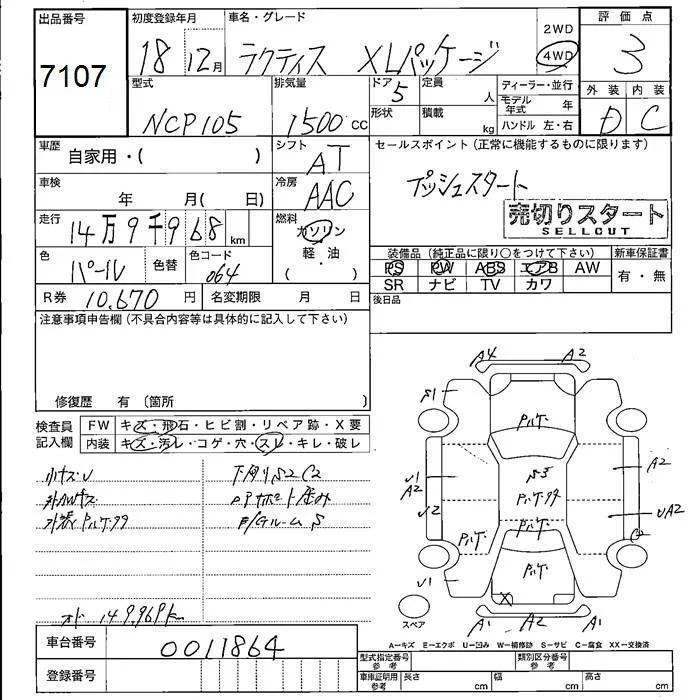 出品番号 初度登録年月 車名・グレード 2WD 評価点
7107 18 12月 ラクティス XLパッケージ 4WD 3
型式 排気量 ドア 定員 ディーラー・並行 外装 内装
NCP105 1500 CC 5 人 モデル年式 年 D C
形状 積載 kg ハンドル 左・右
車歴 自家用・( ) シフト AT セールスポイント(正常に機能するものに限ります)
車検 年 月( 日) 冷房 AAC プッシュスタート
売切りスタート
SELLOUT
走行 14万9千968 km 燃料 ガソリン
軽・油
( )
色 パール 色替 色コード 064
装備品(純正品に限り〇をつけて下さい) 新車保証書
PS PW ABS エアB AW 有・無
SR ナビ TV カワ
R券 10,670 円 名変期限 月 日 後日品
注意事項申告欄(不具合内容等は具体的に記入して下さい)
修復歴 有(箇所 )
検査員 FW キズ・飛石・ヒビ割・リペア跡・X要
記入欄 内装 キズ・汚レ・コゲ・穴・スレ・キレ・破レ
小キズU 下角リS2 C2
外AWキズ
149,969k
A4 A2
S1
S3
U1
A2
A2
U2
UA2
C2
U1
X
A1 A2 A1
スペア
A=キズ E=エクボ U=凹み W=補修跡 S=サビ C=腐食 XX=交換済
車台番号 0011864
登録番号
型式指定番号 参考 類別区分番号 参考
車庫証明用 参考 長さ cm 幅 cm 高さ cm